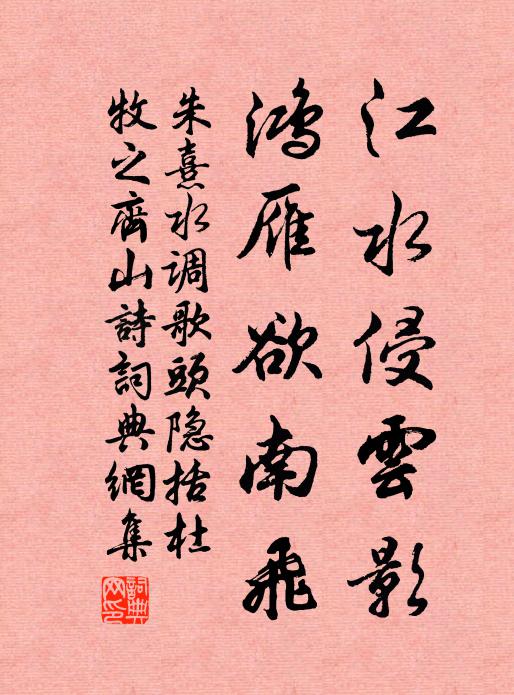 江水侵雲影
鴻雁欲南飛
朱熹水调歌頭隐括杜
牧之齊山詩詞典網集
詞典网印